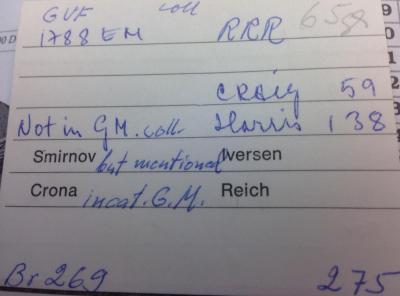 GVF coll 658
1788 EM RRR
Craig 59
Not in G.M. coll. Harris 138
Smirnov but mentioned Iversen
Crona in cat. G.M. Reich
Br 269 275